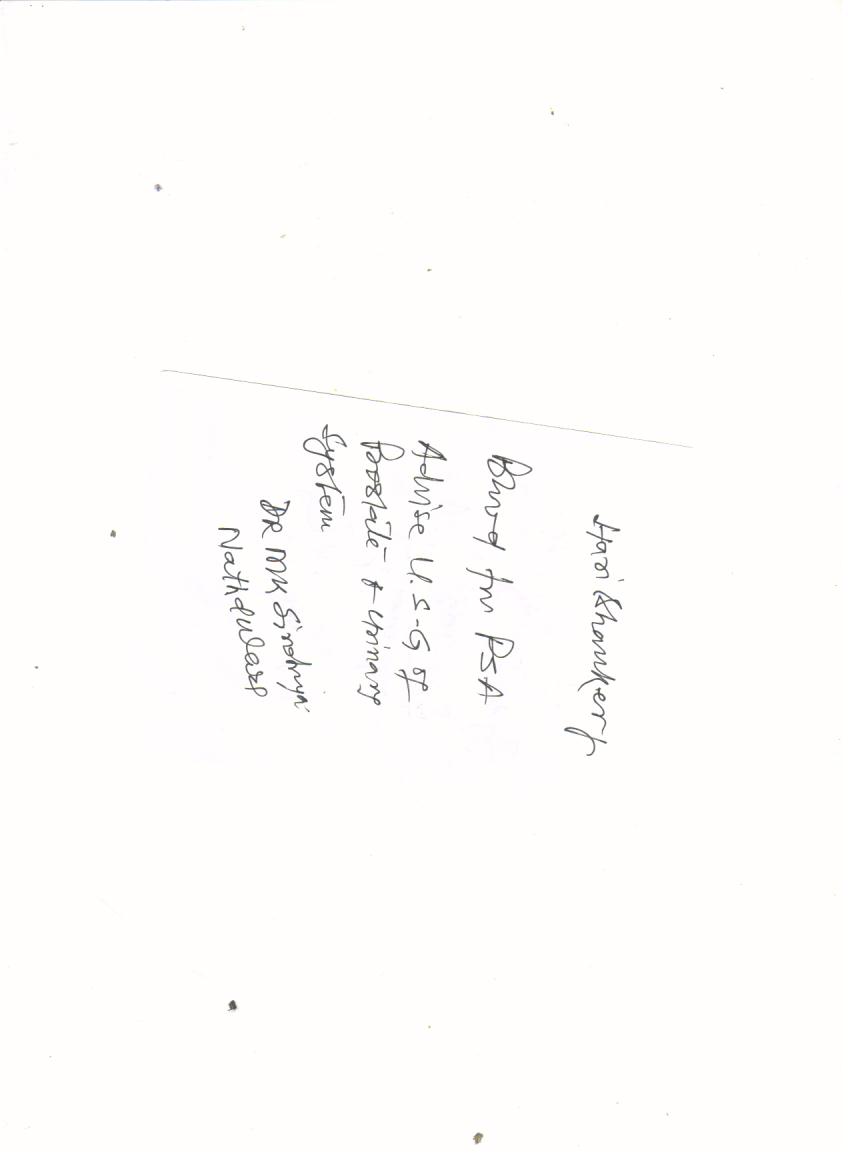 Hari Shankerji
Blood for PSA
Advise U.S-G of
Prostate & Urinary
System
DR MK Sindhya
Nathdwara